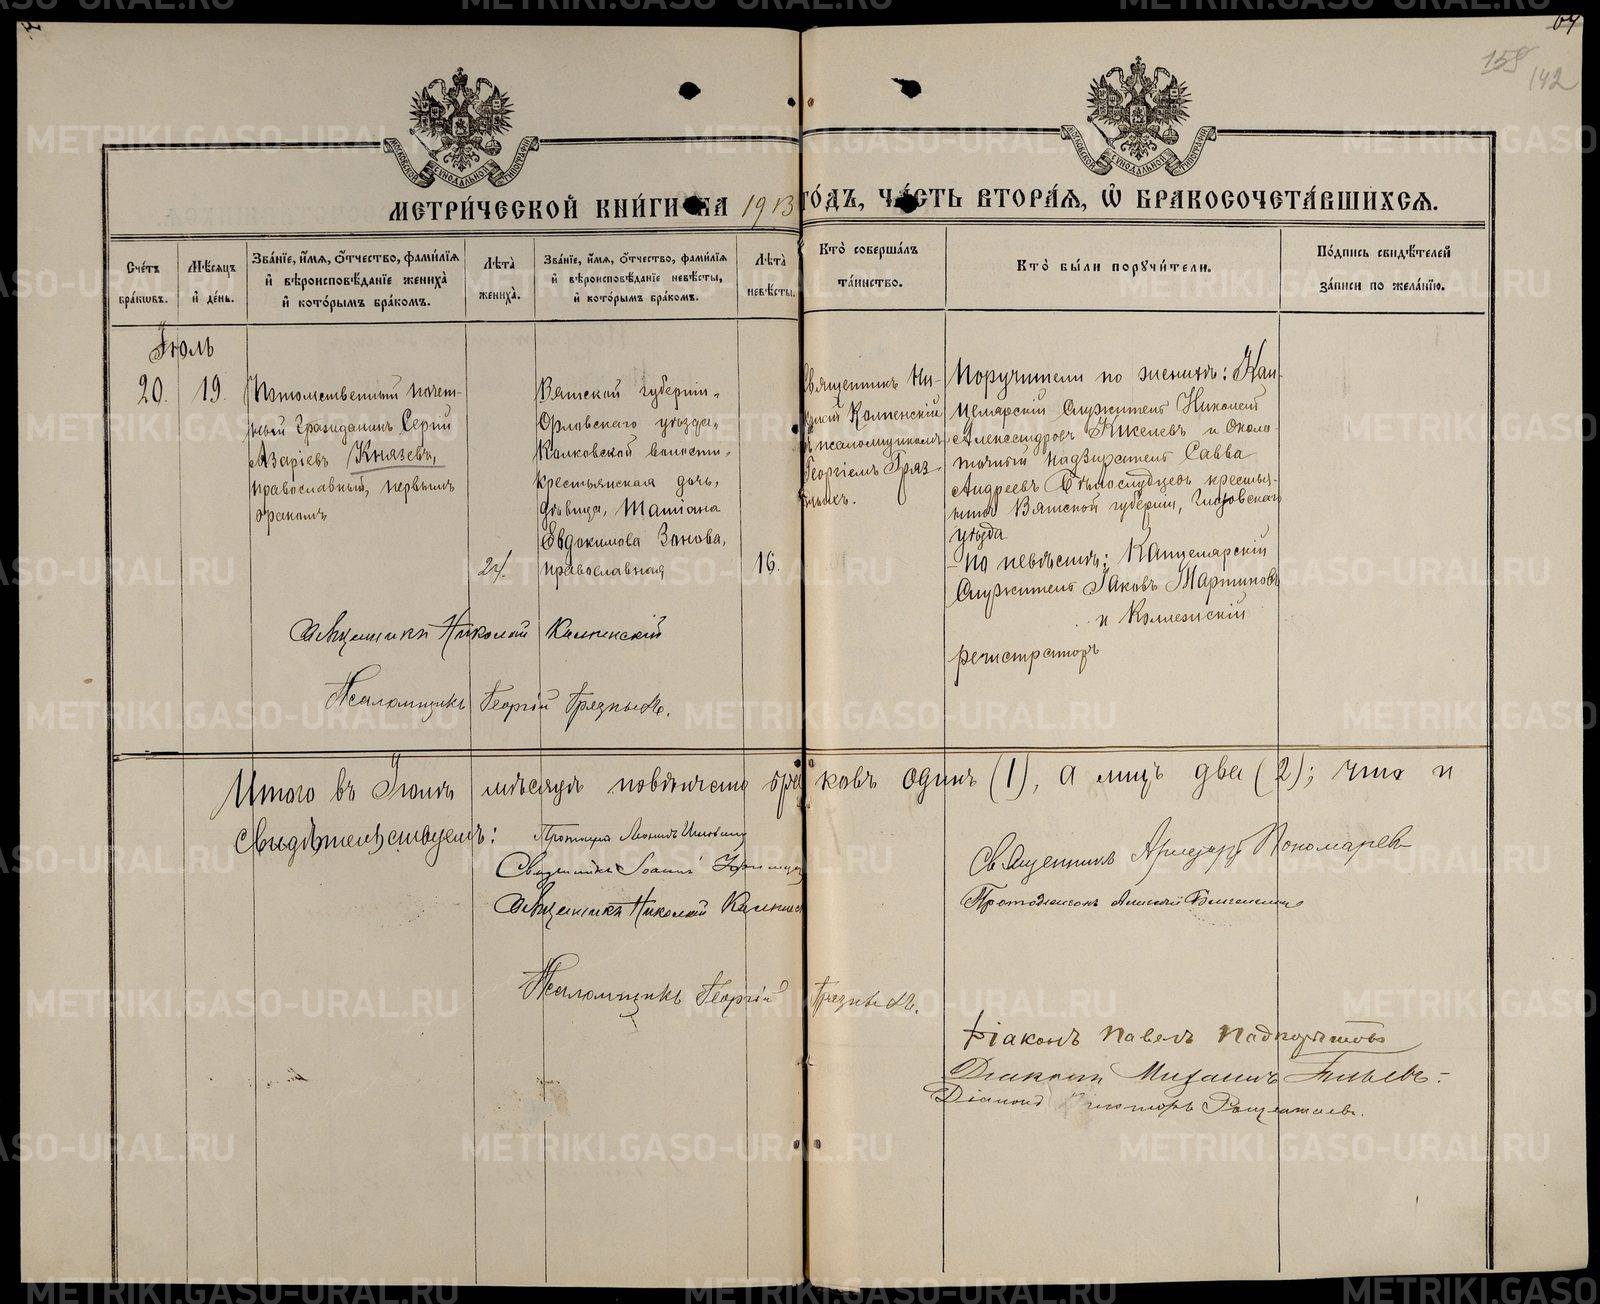 64
158
142
МОСКОВСКОЙ СУНОДАЛЬНОЙ ТИПОГРАФІИ
МОСКОВСКОЙ СУНОДАЛЬНОЙ ТИПОГРАФІИ
МЕТРИ́ЧЕСКОЙ КНИ́ГИ НА 1913 ГО́ДЪ, ЧА́СТЬ ВТОРА́Я, Ѡ҆ БРАКОСОЧЕТА́ВШИХСЯ.
Сче́тъ бра́кѡвъ.
Мѣ́сяцъ и҆ де́нь.
Зва́нїе, и҆́мя, ѻ҆́тчество, фами́лїя и҆ вѣроисповѣ́данїе жениха̀ и҆ кото́рымъ бра́комъ.
Лѣ́та жениха̀.
Зва́нїе, и҆́мя, ѻ҆́тчество, фами́лїя и҆ вѣроисповѣ́данїе невѣ́сты, и҆ кото́рымъ бра́комъ.
Лѣ́та невѣ́сты.
Кто̀ соверша́лъ та́инство.
Кто̀ бы́ли поручи́тели.
По́дпись свидѣ́телей за́писи по жела́нїю.
Іюль
20.
19.
Потомственный почет-
ный гражданинъ Сергій
Азаріевъ Князевъ,
православный, первымъ
бракомъ
24.
Вятской губерніи,
Орловскаго уѣзда,
волости,
крестьянская дочь,
дѣвица, Татіана
Евдокимова Зонова,
православная
16.
Священникъ Ни-
колай
съ псаломщикомъ
Георгіемъ Гряз-
ныхъ.
Поручители по женихѣ: Кан-
целярскій Служитель Николай
Александровъ Кикелевъ и Около-
точный надзиратель Савва
Андреевъ Бѣлослудцевъ крестья-
нинъ Вятской губерніи, Глазовскаго
уѣзда
по невѣстѣ: Канцелярскій
Служитель Іаковъ Мартиновъ
и Коллежскій
регистраторъ
Священникъ Николай
Псаломщикъ Георгій Грязныхъ.
Итого въ Іюлѣ мѣсяцѣ повѣнчано браковъ одинъ (1), а лицъ два (2); что и
свидѣтельствуемъ:
Протоіерей
Священникъ Іоаннъ
Священникъ Николай
Псаломщикъ Георгій Грязныхъ.
Священникъ Пономаревъ
Протодіаконъ Алексій
Діаконъ Павелъ
Діаконъ Михаилъ
Діаконъ Викторъ
METRIKI.GASO-URAL.RU